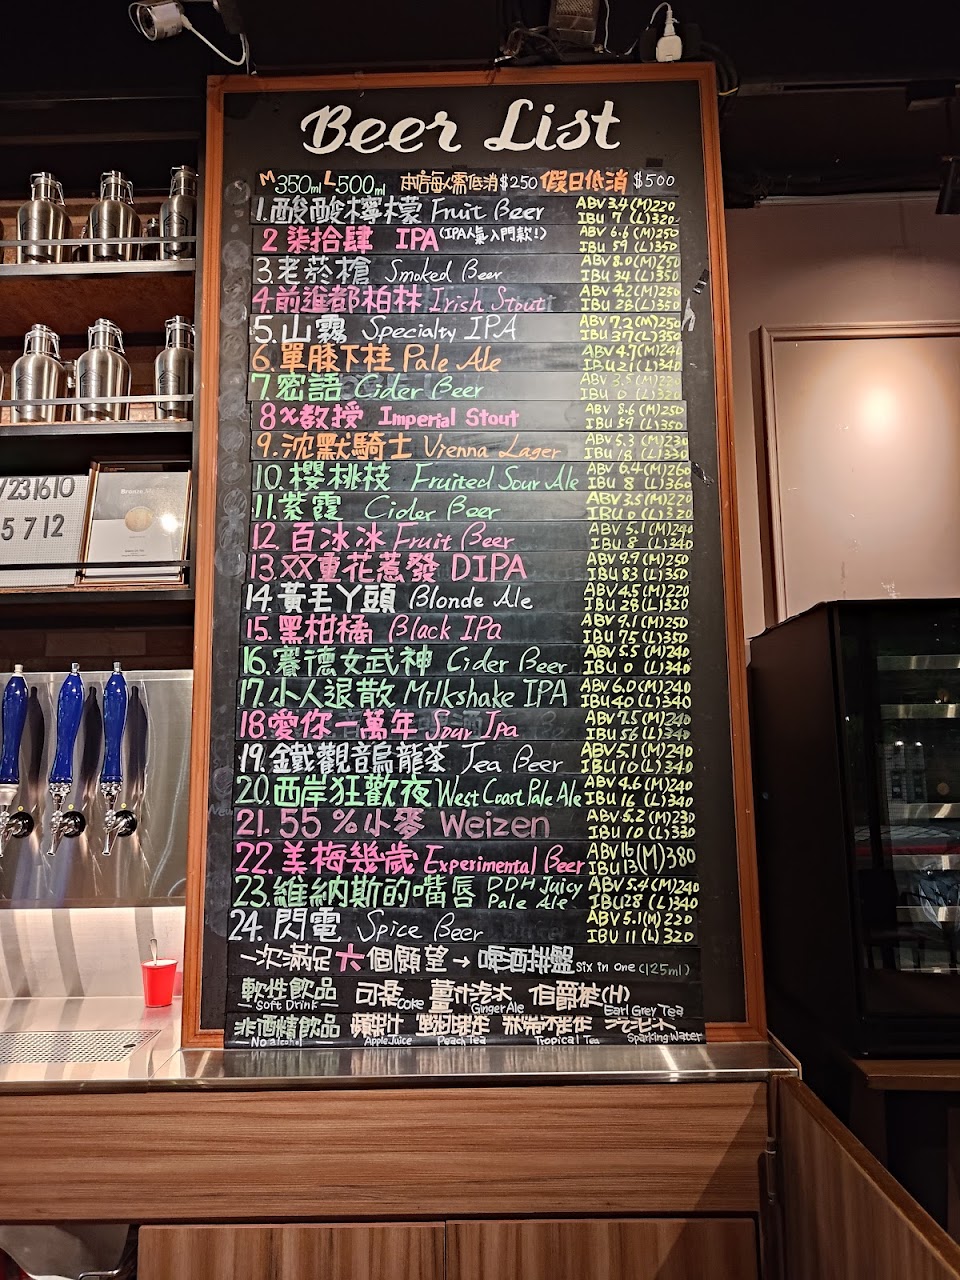 Beer List
M 350ml L 500ml 本店每人需低消$250 假日低消 $500
1.酸酸檸檬 Fruit Beer ABV 3.4 (M)220
IBU 7 (L)320
2 柒拾肆 IPA (IPA人氣入門款!) ABV 6.6 (M)250
IBU 59 (L)350
3.老菸槍 Smoked Beer ABV 8.0(M)250
IBU 34 (L)350
4.前進都柏林 Irish Stout ABV 4.2(M)250
IBU 28(L)350
5.山霧 Specialty IPA ABV 7.2(M)250
IBU 37(L)350
6.單膝下桂 Pale Ale ABV 4.7(M)240
IBU 21(L)340
7.密語 Cider Beer ABV 3.5(M)220
IBU 0 (L)320
8 %教授 Imperial Stout ABV 8.6 (M)250
IBU 59 (L)350
9.沈默騎士 Vienna Lager ABV 5.3 (M)230
IBU 18 (L)330
10.櫻桃枝 Fruited Sour Ale ABV 6.4(M)260
IBU 8 (L)360
11.紫霞 Cider Beer ABV 3.5(M)220
IBU 0 (L)320
12.百冰冰 Fruit Beer ABV 5.1(M)240
IBU 8 (L)340
13.双重花惹發 DIPA ABV 9.9(M)250
IBU 83 (L)350
14.黃毛丫頭 Blonde Ale ABV 4.5(M)220
IBU 28(L)320
15.黑柑橘 Black IPa ABV 9.1(M)250
IBU 75(L)350
16.賽德女武神 Cider Beer ABV 5.5 (M)240
IBU 0 (L)340
17.小人退散 Milkshake IPA ABV 6.0(M)240
IBU 40 (L)340
18.愛你一萬年 Sour Ipa ABV 7.5(M)240
IBU 56 (L)340
19.鐵觀音烏龍茶 Tea Beer ABV 5.1(M)240
IBU 10(L)340
20.西岸狂歡夜 West Coast Pale Ale ABV 4.6(M)240
IBU 16 (L)340
21.55%小麥 Weizen ABV 5.2(M)230
IBU 10 (L)330
22.美梅幾歲 Experimental Beer ABV 16(M)380
IBU 13(L)
23.維納斯的嘴唇 DDH Juicy Pale Ale ABV 5.4(M)240
IBU 28 (L)340
24.閃電 Spice Beer ABV 5.1(M)220
IBU 11 (L)320
一次滿足六個願望→啤酒拼盤 Six in one (125ml)
軟性飲品 可樂 薑汁汽水 伯爵茶(H)
Soft Drink Coke Ginger Ale Earl Grey Tea
非酒精飲品 蘋果汁
No alcohol Apple Juice Peach Tea Tropical Tea Sparking Water
7231610
5 7 12